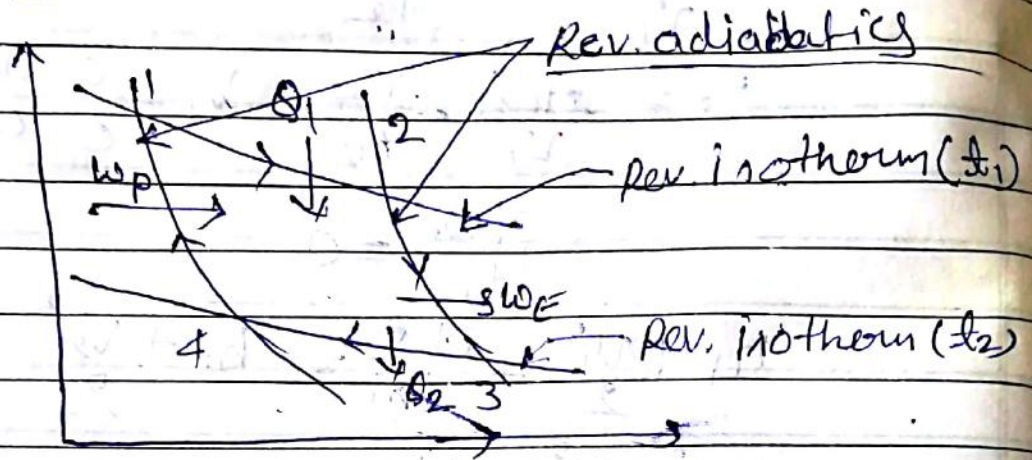 Rev. adiabatics
1
Q1
2
Rev. isotherm (t1)
Wp
WE
4
Rev. isotherm (t2)
Q2 3